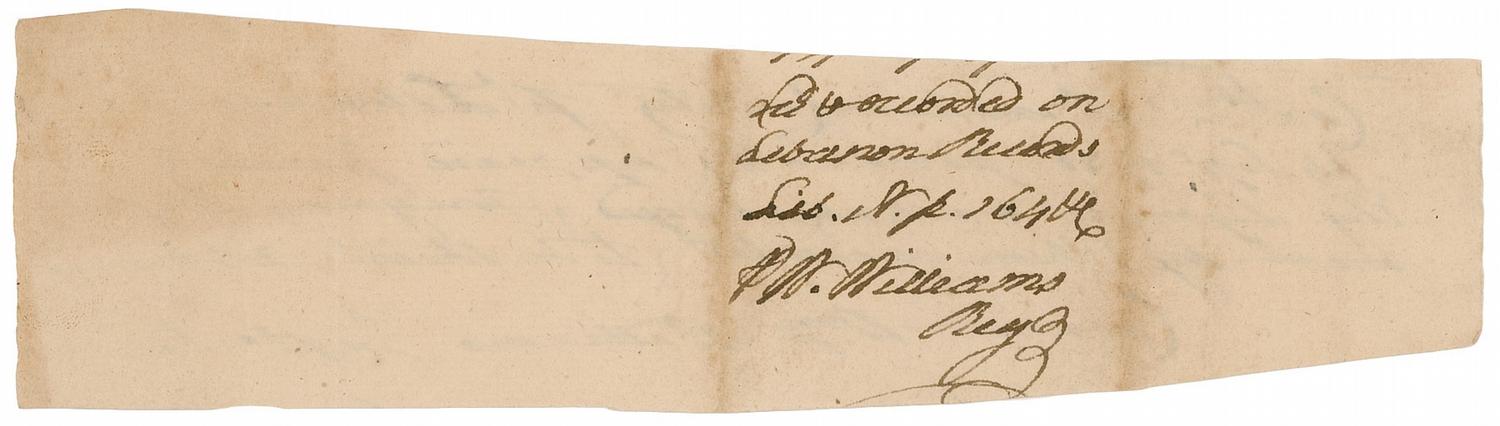 recd & recorded on
Lebanon Records
Lib. N. p. 164 &c
Pr W. Williams
Regr